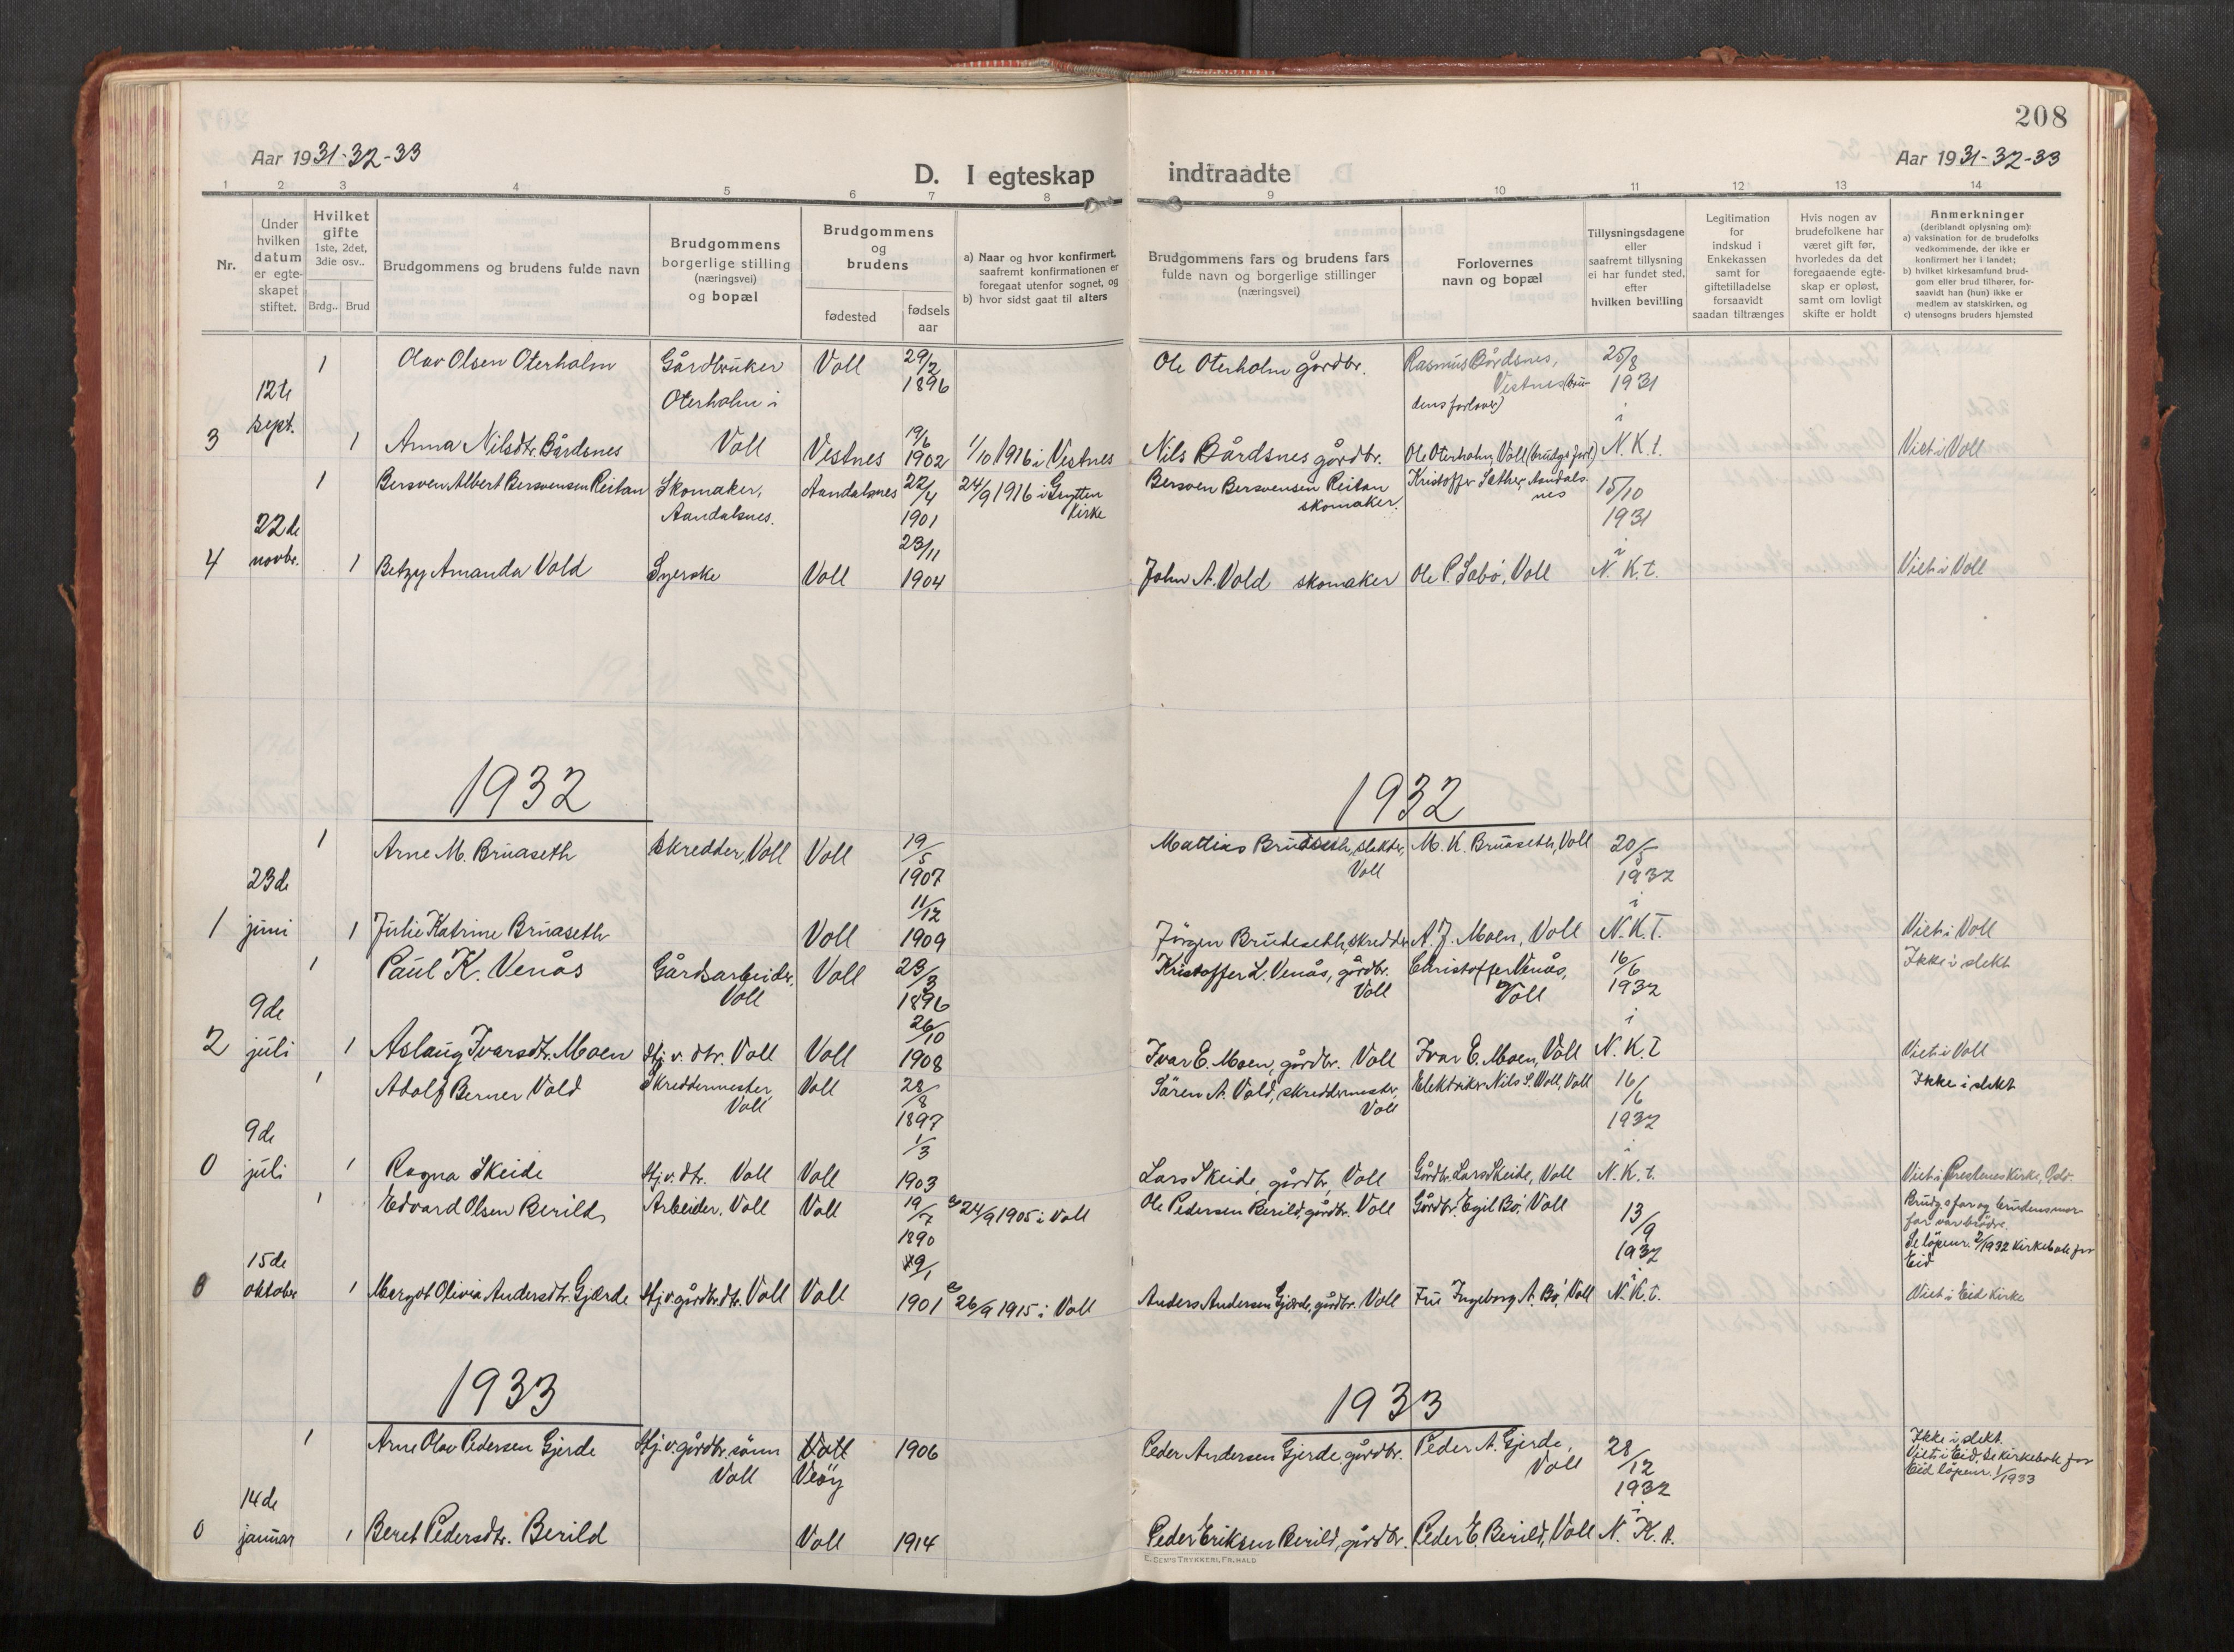 208
Aar 1931-32-33
Aar 1931-32-33
D. I egteskap
indtraadte
1 2 3 4 5 6 7 8 9 10 11 12 13 14
Nr.
Under hvilken datum er egteskapet stiftet.
Hvilket gifte
1ste, 2det, 3die osv..
Brdg.. Brud
Brudgommens og brudens fulde navn
Brudgommens borgerlige stilling
(næringsvei)
og bopæl
Brudgommens og brudens
fødested
fødsels aar
a) Naar og hvor konfirmert, saafremt konfirmationen er foregaat utenfor sognet, og
b) hvor sidst gaat til alters
Brudgommens fars og brudens fars
fulde navn og borgerlige stillinger
(næringsvei)
Forlovernes
navn og bopæl
Tillysningsdagene
eller
saafremt tillysning
ei har fundet sted,
efter
hvilken bevilling
Legitimation
for
indskud i
Enkekassen
samt for
giftetilladelse
forsaavidt
saadan tiltrænges
Hvis nogen av
brudefolkene har
været gift før,
hvorledes da det
foregaaende egte-
skap er opløst,
samt om lovligt
skifte er holdt
Anmerkninger
(deriblandt oplysning om):
a) vaksination for de brudefolks
vedkommende, der ikke er
konfirmert her i landet;
b) hvilket kirkesamfund brud-
gom eller brud tilhører, for-
saavidt han (hun) ikke er
medlem av statskirken, og
c) utensogns bruders hjemsted
1 Olav Olsen Oterholm Gårdbruker Oterholm i Voll 29/2 1896 Ole Oterholm gårdbr. Rasmus Bårdsnes, Vestnes (brudens forlover) 25/8 1931
3 12te sept. 1 Anna Nilsdtr. Bårdsnes Voll Vestnes 19/6 1902 1/10 1916 i Vestnes Nils Bårdsnes gårdbr. Ole Oterholm, Voll (brudgs forl) i N.K.t. Viet i Voll
1 Bersven Albert Bersvensen Reitan Skomaker, Aandalsnes. Aandalsnes 22/4 1901 24/9 1916 i Grytten Kirke Bersven Bersvensen Reitan skomaker. Kristoffer Sæther, Aandalsnes 15/10 1931
4 22de novbr. 1 Betzy Amanda Vold Syerske Voll 23/11 1904 John A. Vold skomaker Ole P. Sabø, Voll i N.K.t. Viet i Voll
1932
1932
1 Arne M. Bruaseth Skredder, Voll Voll 19/5 1907 Mathias Bruaseth, slakter, Voll M. K. Bruaseth, Voll 20/5 1932
1 23de juni 1 Julie Katrine Bruaseth Voll 11/12 1909 Jörgen Brudeseth, skredder A. J. Moen, Voll i N.K.T. Viet i Voll
Ikke i slekt
1 Paul K. Venås Gårdsarbeider, Voll Voll 23/3 1896 Kristoffer L. Venås, gårdbr. Voll Christoffer Venås, Voll 16/6 1932
2 9de juli 1 Aslaug Ivarsdtr. Moen Hj. v. dtr. Voll Voll 26/10 1908 Ivar E. Moen, gårdbr. Voll Ivar E. Moen, Voll i N.K.T Viet i Voll
Ikke i slekt
1 Adolf Berner Vold Skreddermester Voll Voll 28/8 1897 Sören A. Vold, skreddermester, Voll Elektriker Nils S. Voll, Voll 16/6 1932
0 9de juli 1 Ragna Skeide Hj. v. dtr. Voll Voll 1/3 1903 Lars Skeide, gårdbr, Voll Gårdbr. Lars Skeide, Voll i N.K.t. Viet i Prestenes Kirke, Oslo.
1 Edvard Olsen Berild Arbeider, Voll Voll 19/7 1890 a) 24/9 1905 i Voll Ole Pedersen Berild, gårdbr. Voll Gårdbr. Egil Bö, Voll 13/9 1932 Brudg.s far og brudens morfar var brödre.
Se löpenr. 2/1932 kirkebok for Eid
0 15de oktober 1 Margot Olivia Andersdtr. Gjerde Hj. v. gårdbr. dtr. Voll Voll 29/1 1901 a) 26/9 1915 i Voll Anders Andersen Gjerde, gårdbr. Voll Fru Ingeborg A. Bö, Voll i N.K.t. Viet i Eid Kirke
1933
1933
1 Arne Olav Pedersen Gjerde Hj. v. gårdbr. sönn Voll Voll Veöy 1906 Peder Andersen Gjerde, gårdbr. Peder A. Gjerde, Voll 28/12 1932 Ikke i slekt.
Viet i Eid, Se kirkebok for Eid löpenr. 1/1933
0 14de januar 1 Beret Pedersdtr. Berild Voll 1914 Peder Eriksen Berild, gårdbr. Peder E. Berild, Voll i N.K.t.
E. DEMS TRYKKERI, FR.HALD